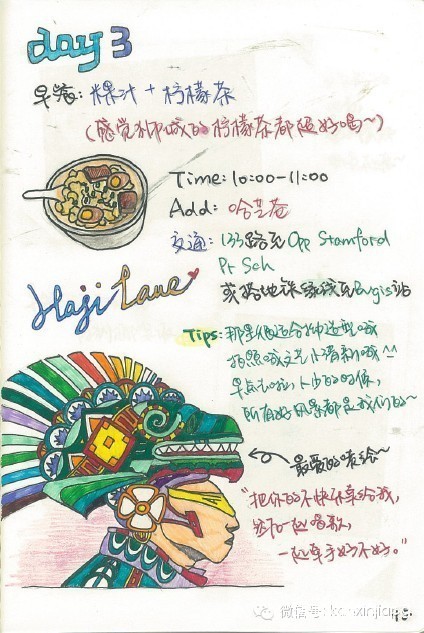 day 3
早餐: 粿汁 + 柠檬茶
(感觉狮城的柠檬茶都超好喝~)
Time: 10:00-11:00
Add: 哈芝巷
交通: 133路至Opp Stamford
Pr Sch
或搭地铁绿线至Bugis站
Haji Lane
Tips: 那里很适合拍造型哦
拍照哦文艺小清新哦^^
早点去啦人少的时候,
所有好风景都是我们的~
最爱的墙绘~
"把你的不快乐拿给我,
我们一起唱歌,
一起牵手好不好。"
微信号: kanxinjiapo